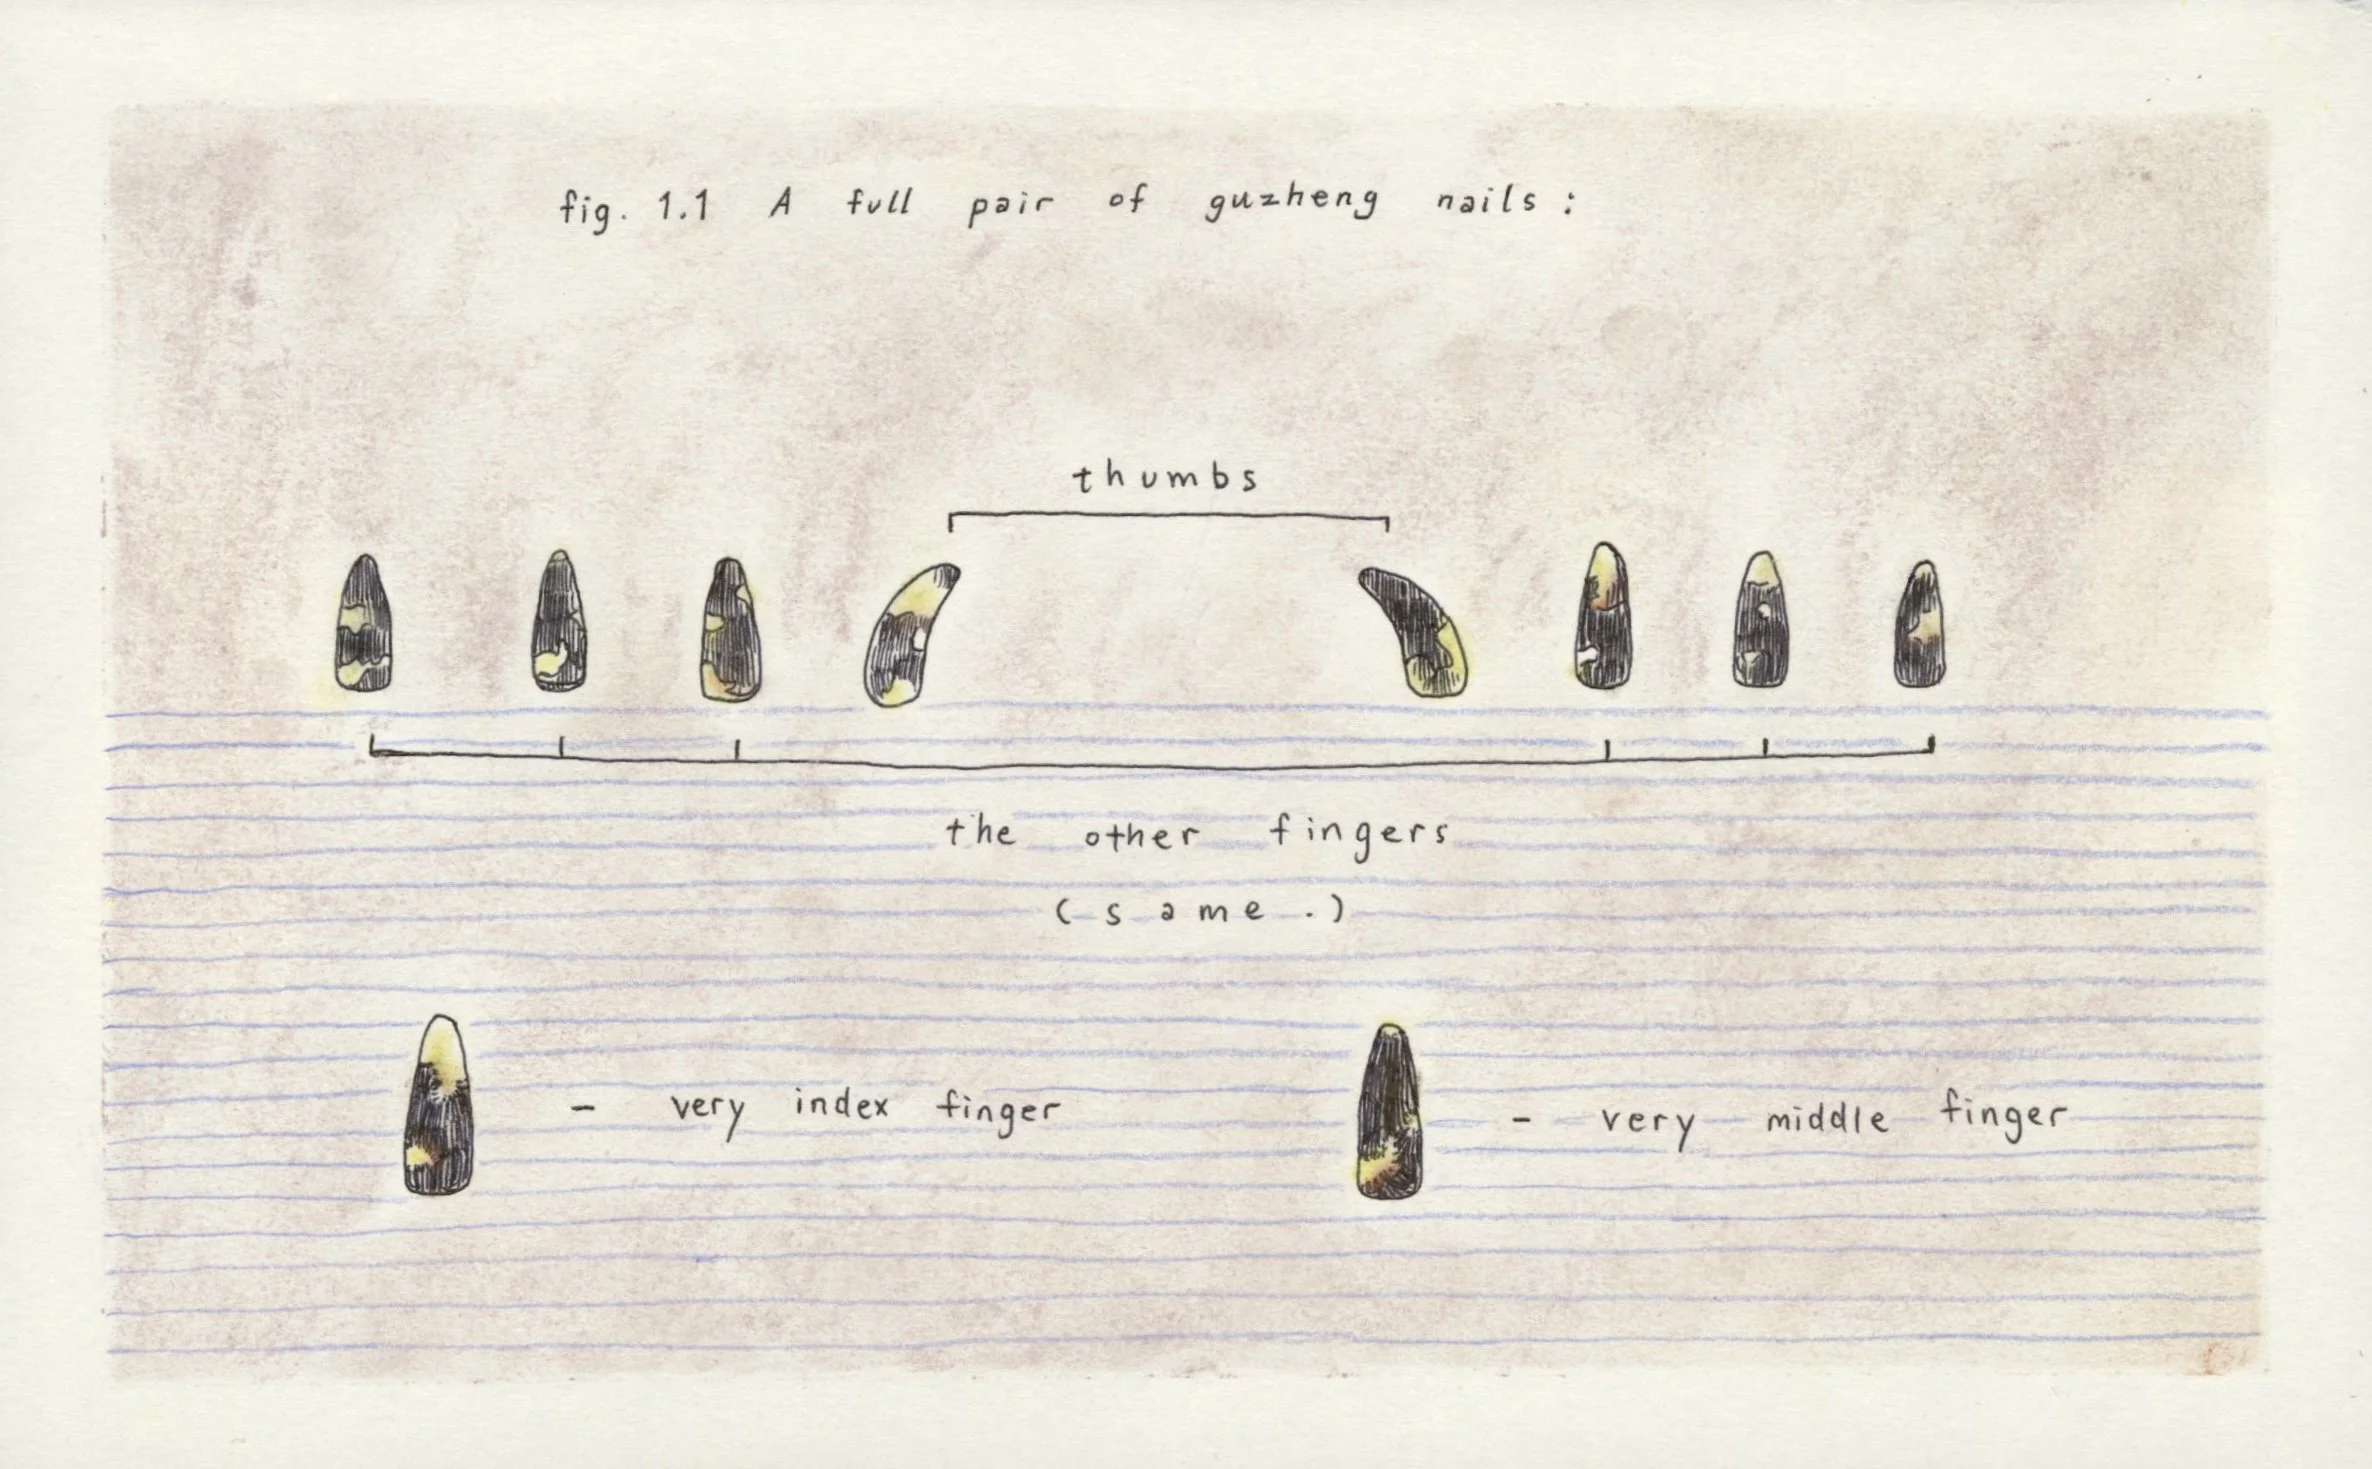 fig. 1.1 A full pair of guzheng nails :
thumbs
the other fingers
( same . )
- very index finger
- very middle finger